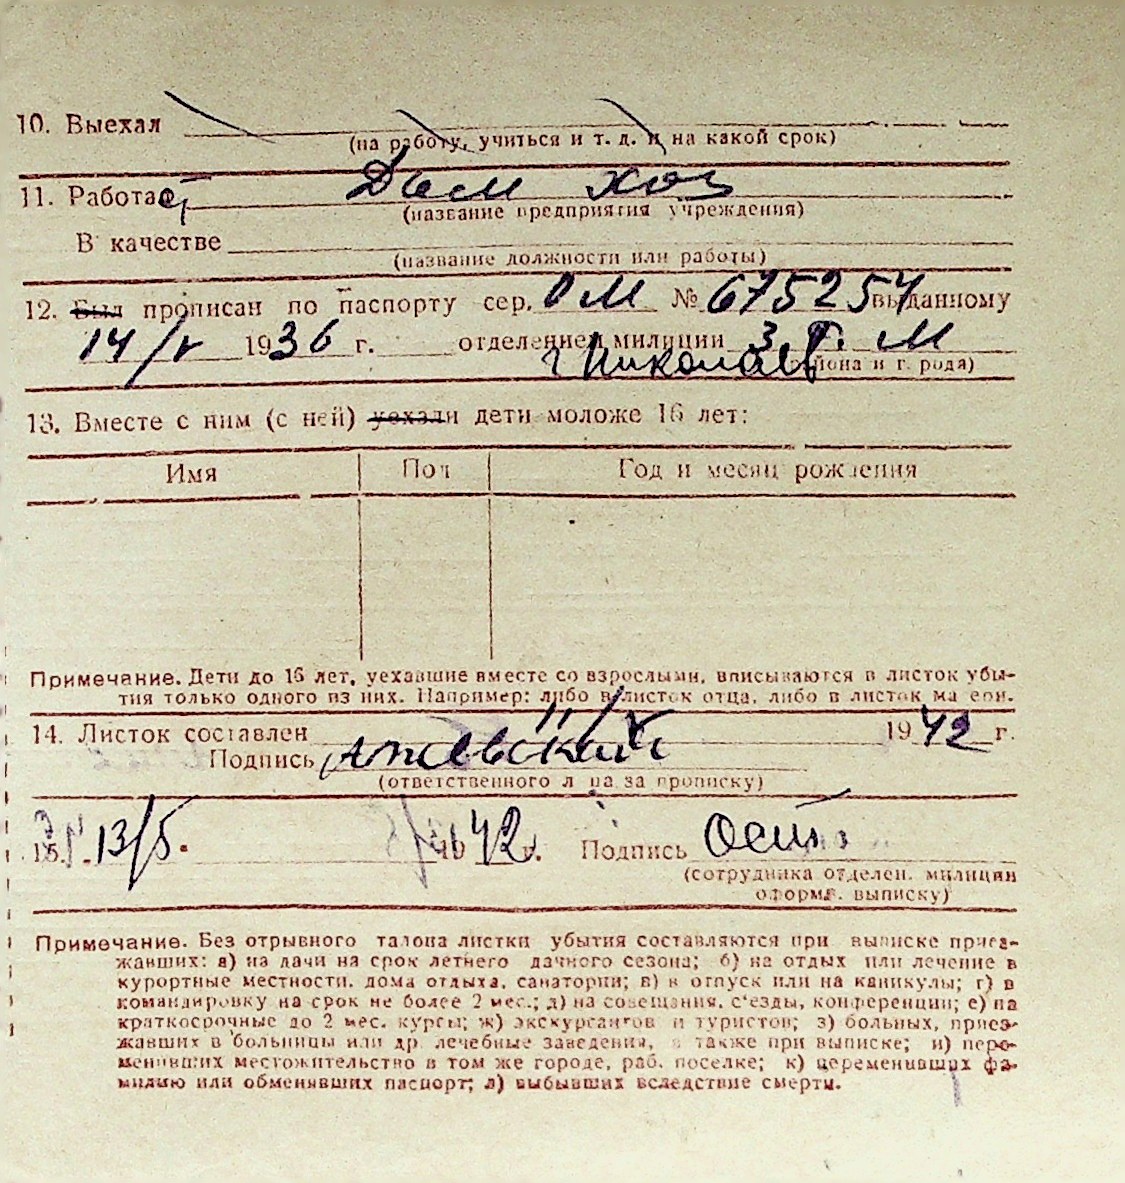 10. Выехал
(на работу, учиться и т. д. и на какой срок)
11. Работает Дом хоз
(название предприятия учреждения)
В качестве
(название должности или работы)
12. Был прописан по паспорту сер. ОМ № 675254 выданному
14/V 1936 г. отделением милиции 3 М
г Николаев района и города)
13. Вместе с ним (с ней) уехали дети моложе 16 лет:
Имя Пол Год и месяц рождения
Примечание. Дети до 16 лет, уехавшие вместе со взрослыми, вписываются в листок убы-
тия только одного из них. Например: либо в листок отца, либо в листок матери.
14. Листок составлен 11/V 1942 г.
Подпись
(ответственного лица за прописку)
15. 13/5. 1942 г. Подпись
(сотрудника отделен. милиции
оформ. выписку)
Примечание. Без отрывного талона листки убытия составляются при выписке приез-
жавших: а) на дачи на срок летнего дачного сезона; б) на отдых или лечение в
курортные местности, дома отдыха, санатории; в) в отпуск или на каникулы; г) в
командировку на срок не более 2 мес.; д) на совещания, с'езды, конференции; е) на
краткосрочные до 2 мес. курсы; ж) экскурсантов и туристов; з) больных, приез-
жавших в больницы или др. лечебные заведения, а также при выписке; и) пере-
менивших местожительство в том же городе, раб. поселке; к) переменивших фа-
милию или обменявших паспорт; л) выбывших вследствие смерти.